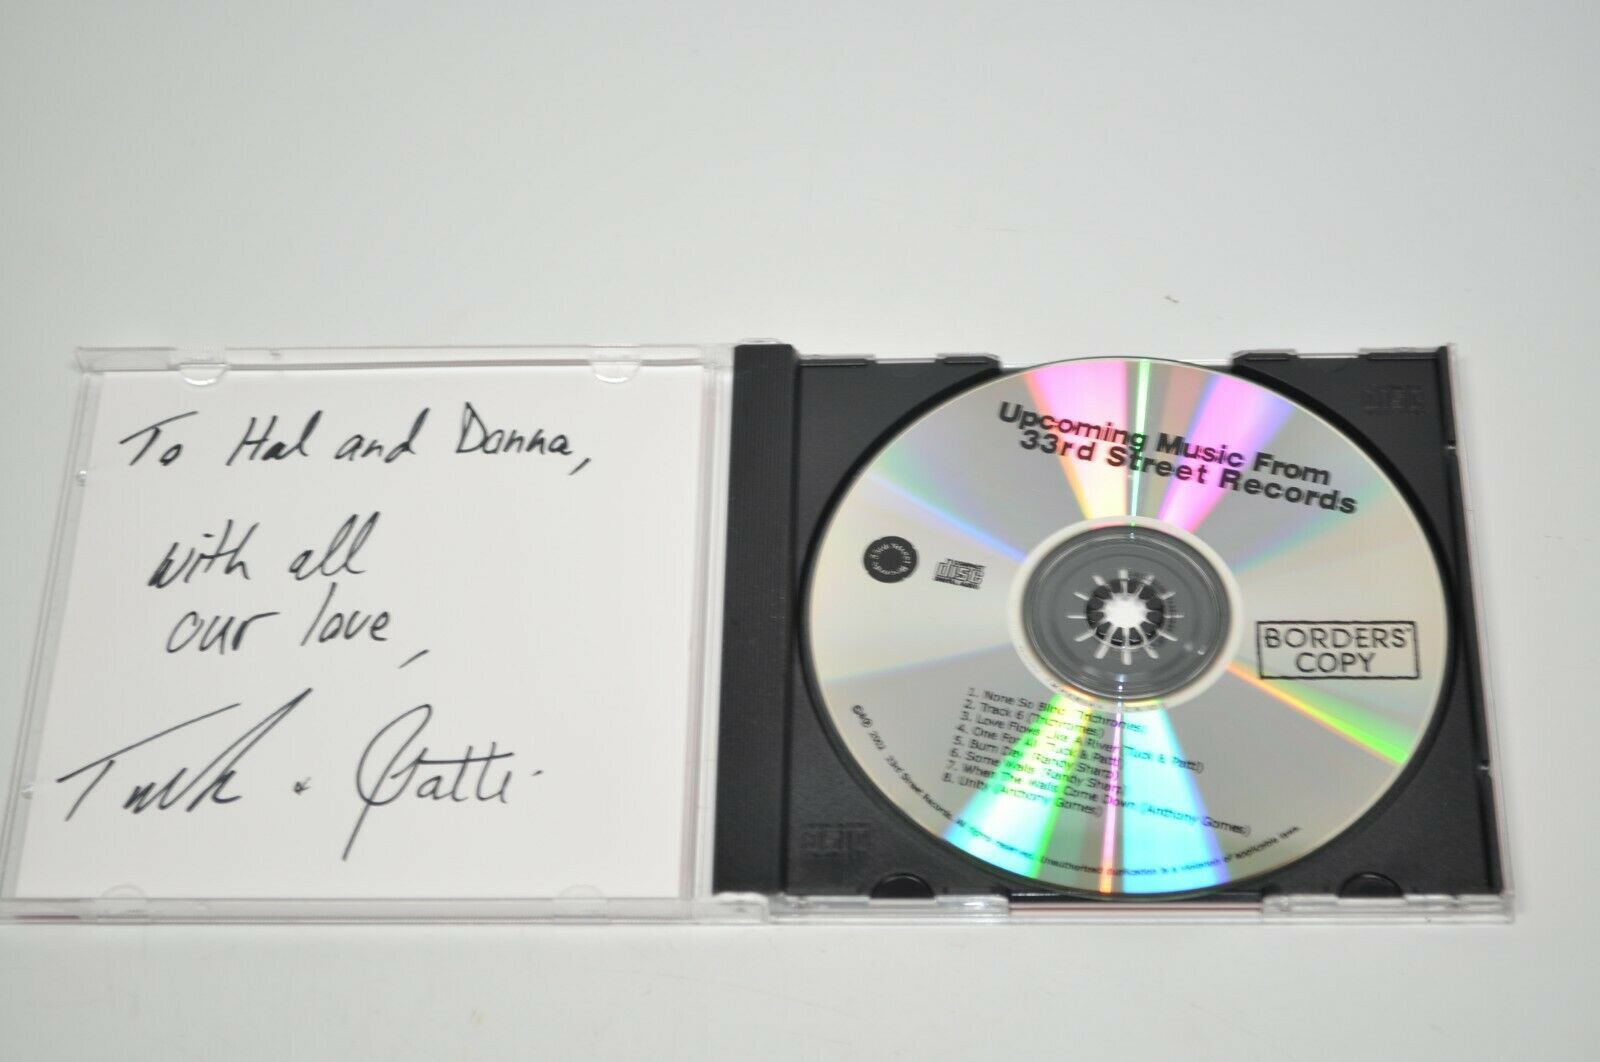 To Hal and Donna,
with all
our love,
Tuck + Patti
Upcoming Music From
33rd Street Records
disc
BORDERS
COPY
1. None So Blind (Trichromes)
2. Track 6 (Trichromes)
3. Love Flows Like A River (Tuck & Patti)
4. One For All (Tuck & Patti)
5. Burn Day (Randy Sharp)
6. Some Walls (Randy Sharp)
7. When The Walls Come Down (Anthony Gomes)
8. Unity (Anthony Gomes)
33rd Street Records. All rights reserved. Unauthorized duplication is a violation of applicable laws.